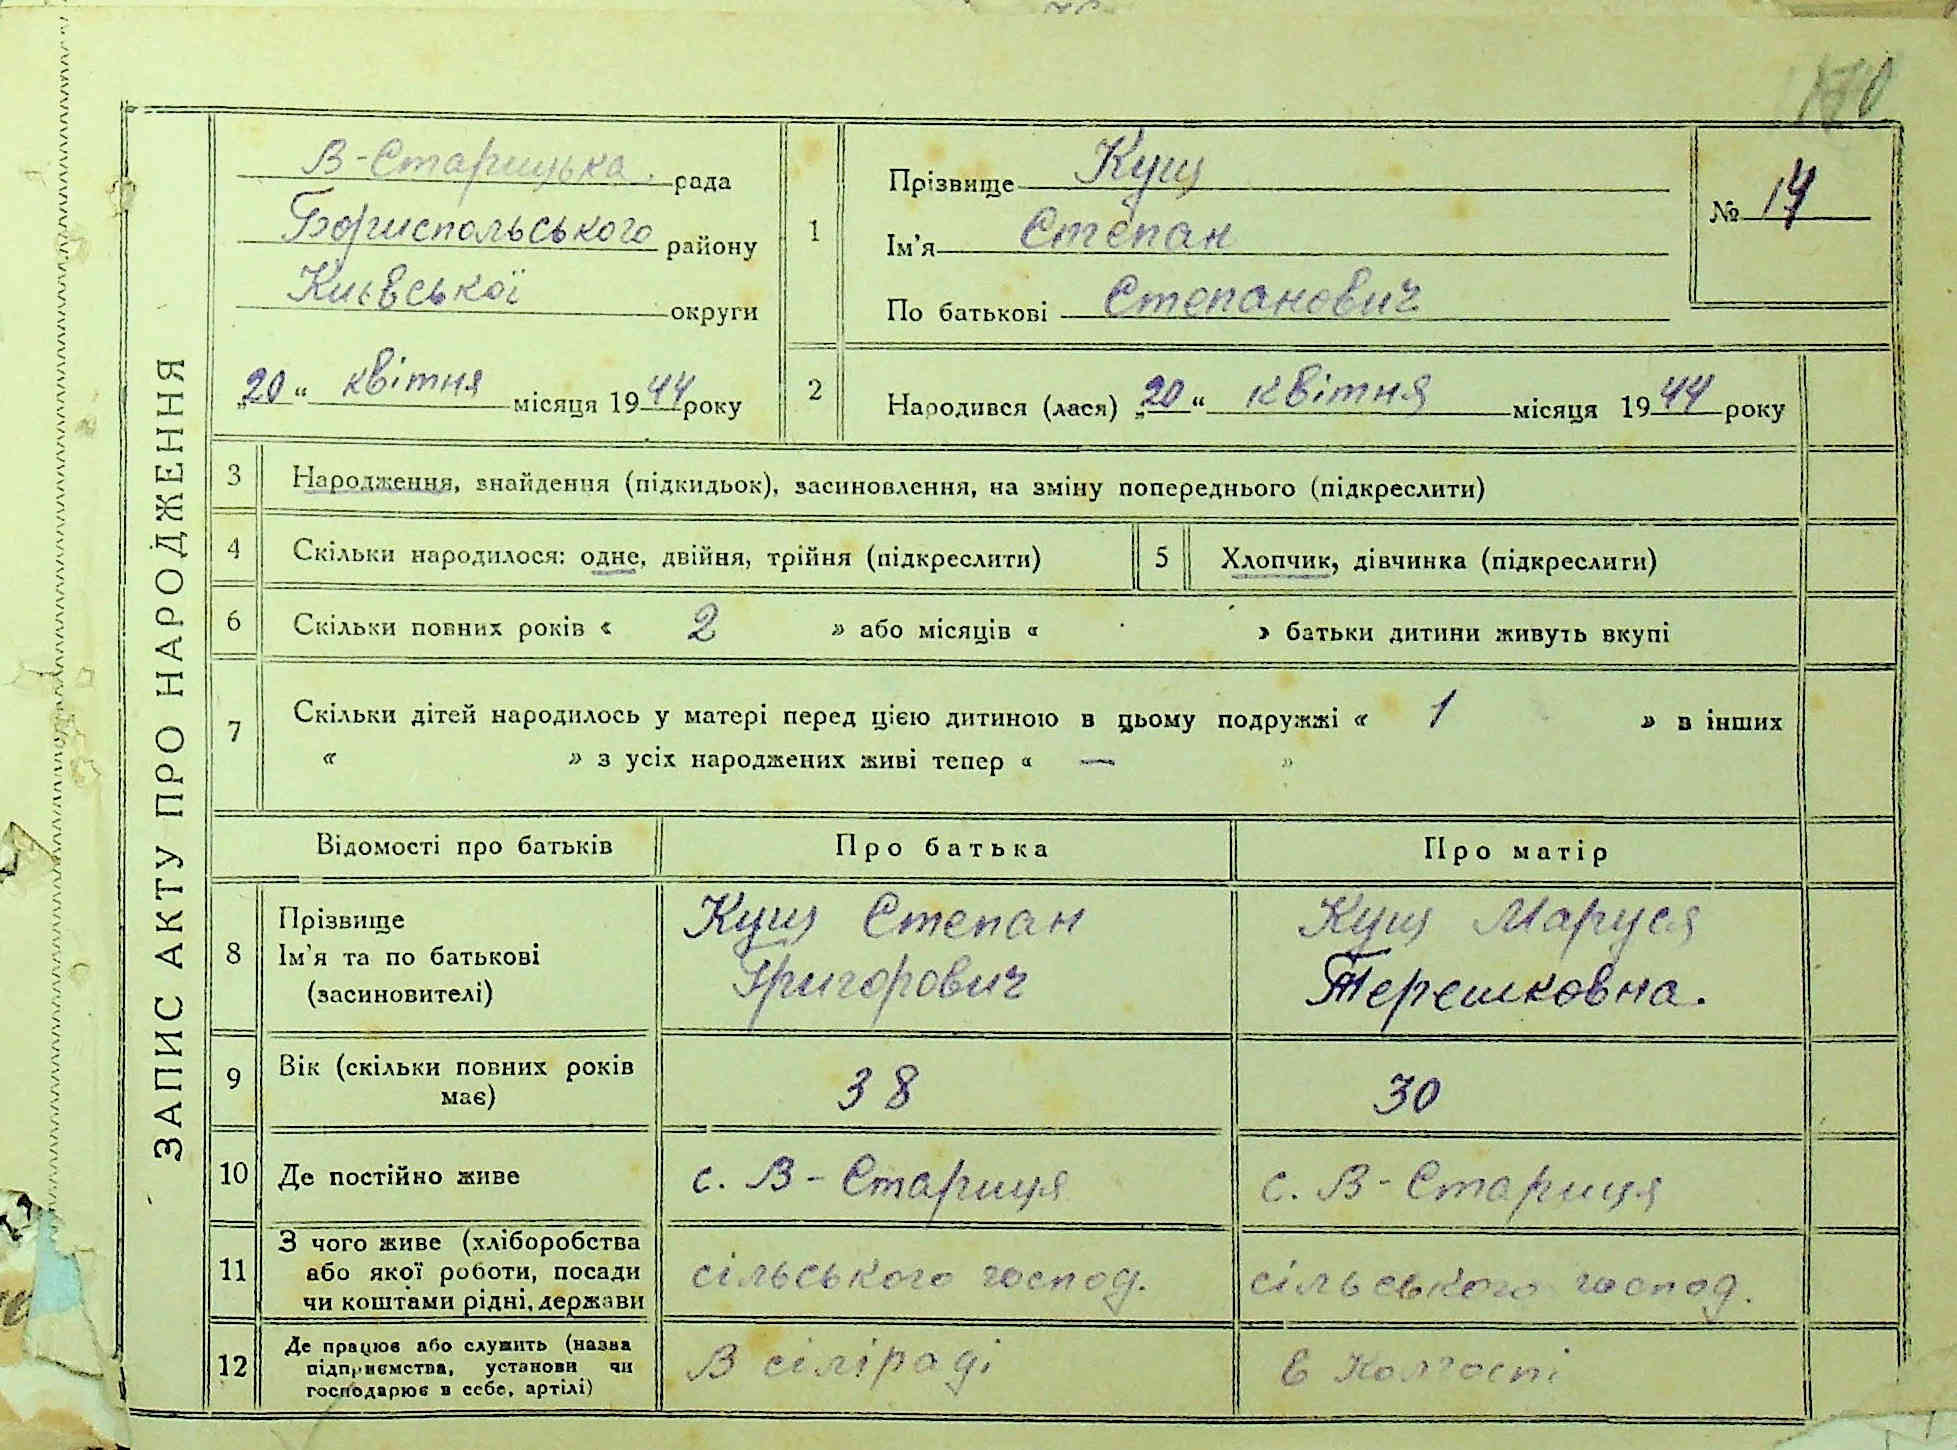 ЗАПИС АКТУ ПРО НАРОДЖЕННЯ
В-Старицька рада
Бориспольського району
Києвської округи
„20“ квітня місяця 1944 року
1
Прізвище Кущ
Ім'я Степан
По батькові Степанович
№ 14
2
Народився (лася) „20“ квітня місяця 1944 року
3 Народження, знайдення (підкидьок), засиновлення, на зміну попереднього (підкреслити)
4 Скільки народилося: одне, двійня, трійня (підкреслити)
5 Хлопчик, дівчинка (підкреслити)
6 Скільки повних років « 2 » або місяців « » батьки дитини живуть вкупі
7 Скільки дітей народилось у матері перед цією дитиною в цьому подружжі « 1 » в інших
« » з усіх народжених живі тепер « — »
Відомості про батьків Про батька Про матір
8
Прізвище
Ім'я та по батькові
(засиновителі)
Кущ Степан
Григорович
Кущ Маруся
Терешковна.
9 Вік (скільки повних років
має)
38
30
10 Де постійно живе с. В-Стариця с. В-Стариця
11
З чого живе (хліборобства
або якої роботи, посади
чи коштами рідні, держави
сільського господ.
сільського господ.
12
Де працює або служить (назва
підприємства, установи чи
господарює в себе, артілі)
В сілiраді
в колгоспі